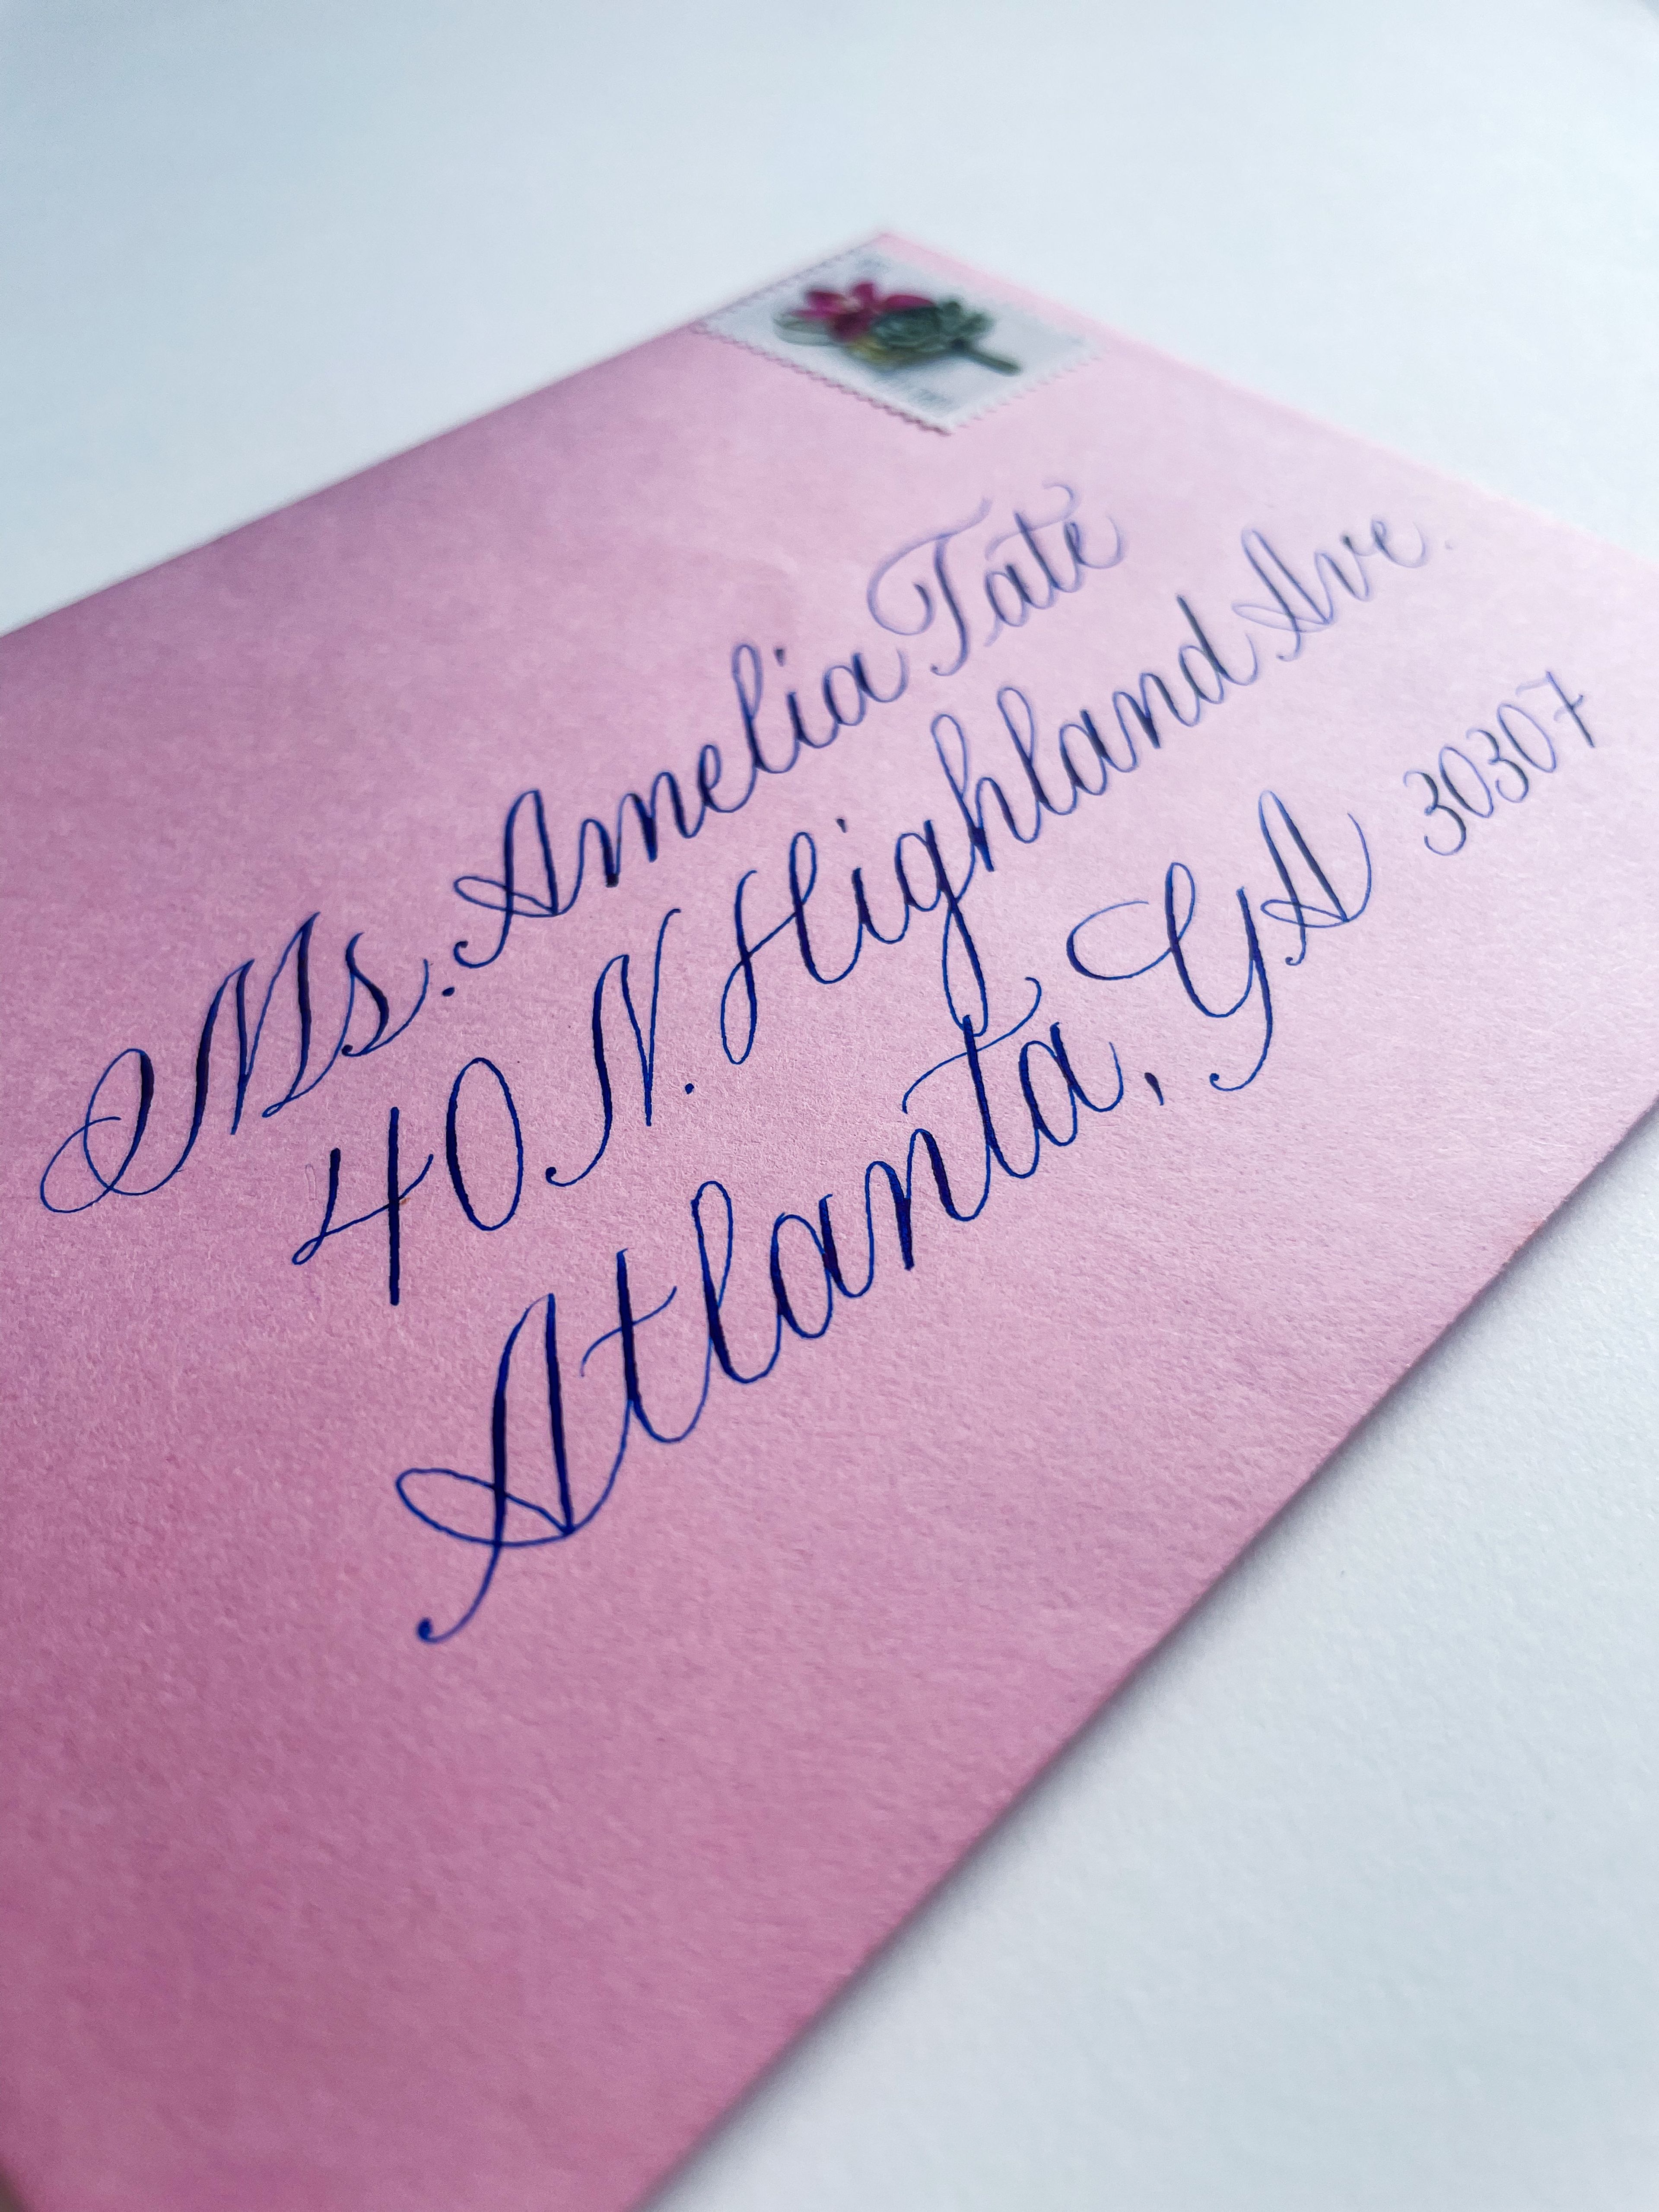 Ms. Amelia Tate
40 N. Highland Ave.
Atlanta, GA 30307